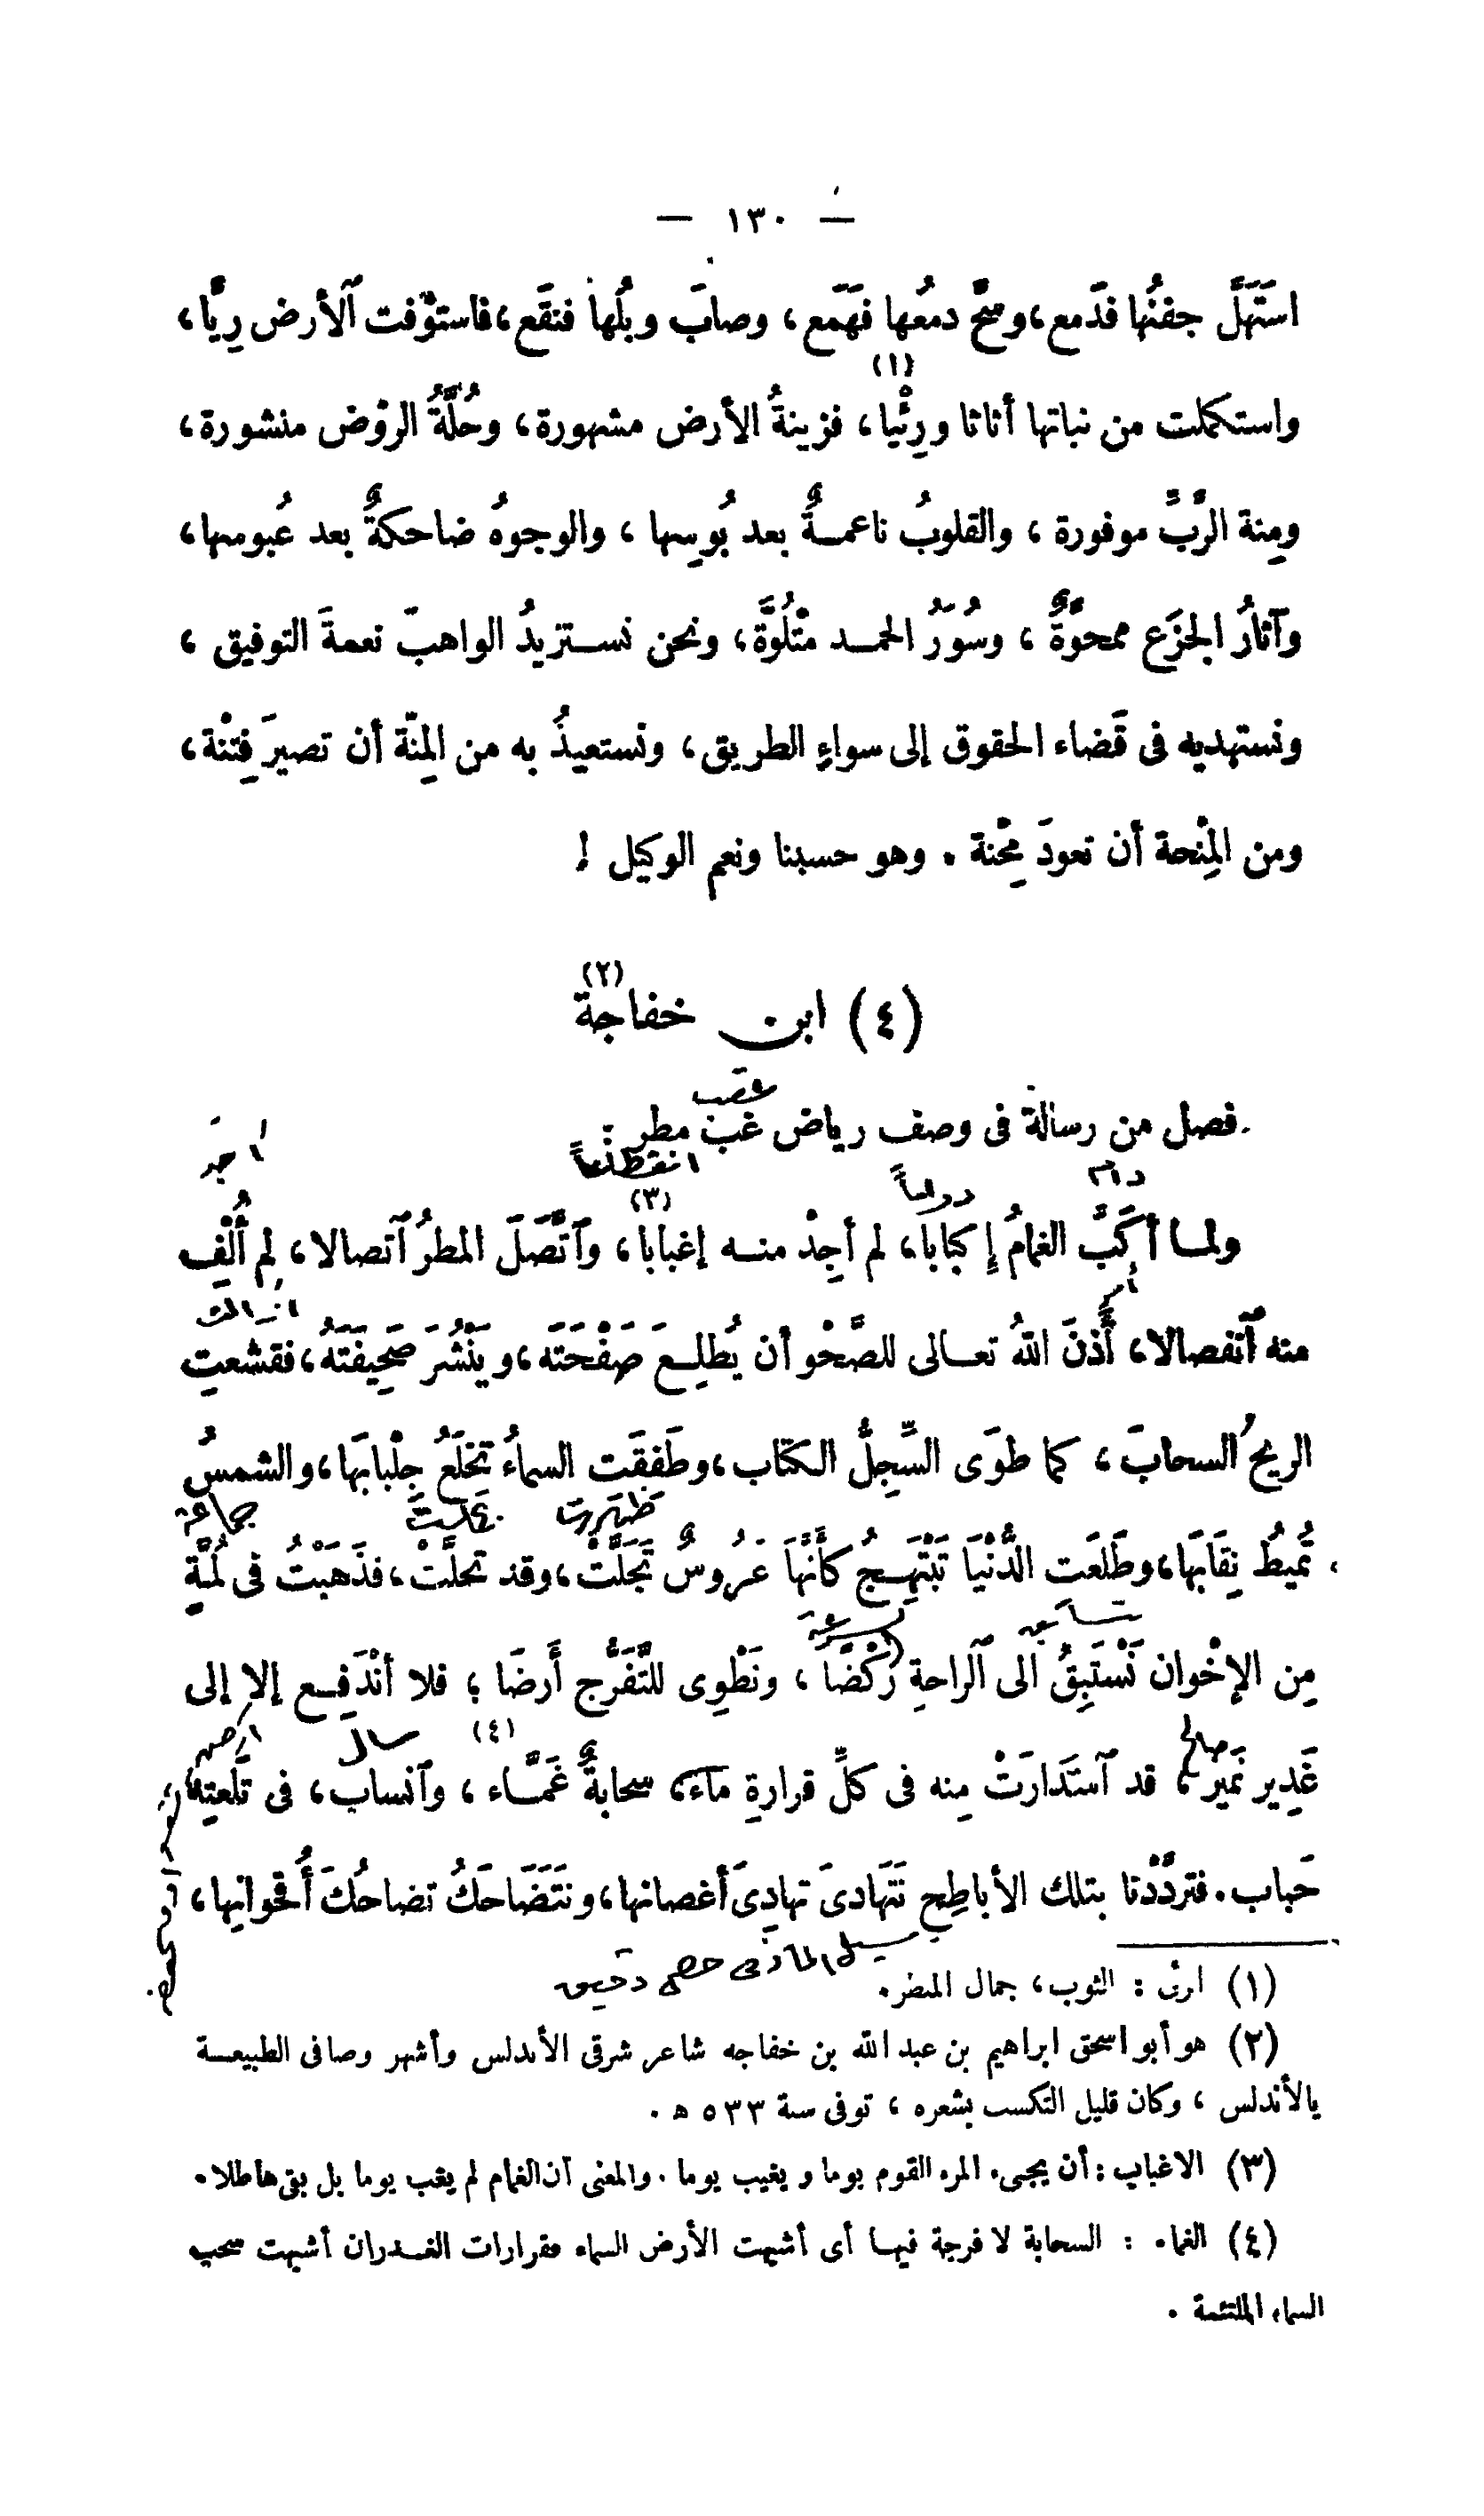 — ١٣٠ —
استَهَلَّ جفنُها فدَمع، وسَحَّ دمعُها فهَمَع، وصابَ وبْلُها فنقَع، فاستوْفت ٱلأرض رِيًّا،
واستكملت من نباتها أثاثا ورِئْيا (١)، فزينةُ الأرض مشهورة، وحُلَّةُ الروْض منشورة،
ومِنة الرَّبِّ موفورة، والقلوبُ ناعمةٌ بعد بُوسِها، والوجوهُ ضاحكةٌ بعد عُبوسها،
وآثارُ الجزَع ممحوَّةٌ، وسُوَرُ الحمد متْلُوَّة، ونحن نستزيدُ الواهبَ نعمةَ التوفيق،
ونستهديه فى قَضاء الحقوق إلى سواءِ الطريق، ونستعيذُ به من المِنّة أن تصيرَ فِتْنة،
ومن المِنْحة أن تعودَ مِحْنة. وهو حسبنا ونعم الوكيل!
(٤) ابن خفاجة (٢)
عقب
فصل من رسالة فى وصف رياض غبَّ مطر:
انقطاعاً
اجد
دام
دواماً
ولما أكَبَّ الغمامُ إكبابا، لم أجِدْ منه إغبابا (٣)، وٱتَّصَلَ المطرُ ٱتصالا، لم أُلْفِ
منه ٱنفصالا، أَذنَ اللهُ تعالى للصَّحْو أن يُطلِعَ صَفْحَتَه، ويَنْشُرَ صَحِيفَتَهُ، فقشعتِ
الريحُ السحابَ، كما طوَى السِّجِلُّ الكتاب، وطَفِقَت السماءُ تخلَعُ جِلْبابَها، والشمسُ
ظهرت
جماعة
تُميطُ نِقَابَها، وطَلَعَتِ الدُّنْيَا تَبْتَهِجُ كأنَّهَا عَرُوسٌ تَجَلَّتْ، وقد تحلَّتْ، فذَهَبْتُ فى لُمَّةٍ
مِن الإخْوان نَسْتَبِقُ الى ٱلراحةِ رَكْضًا، ونَطْوِى للتَّفَرُّج أَرضَا؛ فلا أنْدَفِع إلا إلى
سال
غَدِير نَمير، قد ٱستَدَارَتْ مِنه فى كلِّ قرارةِ ماء، سحابةٌ غَمَّاء (٤)، وٱنساب، فى تَلْعتِه
حَباب. فتردّدْنا بتلك الأباطِح نَتَهَادىَ تهادِىَ أغصانها، ونتَضَاحَكُ تضاحُكَ أُقحوانِها،
(١) الرئى: الثوب، جمال المنظر.
(٢) هو أبو اسحق ابراهيم بن عبد الله بن خفاجه شاعر شرقى الأندلس وأشهر وصافى الطبيعة
بالأندلس، وكان قليل التكسب بشعره، توفى سنة ٥٣٣ ه.
(٣) الاغباب: أن يجىء المرء القوم يوما ويغيب يوما. والمعنى أن الغمام لم يغب يوما بل بقى هاطلا.
(٤) الغماء: السحابة لا فرجة فيها أى أشبهت الأرض السماء فقرارات الغدران أشبهت سحب
السماء الملتئمة.